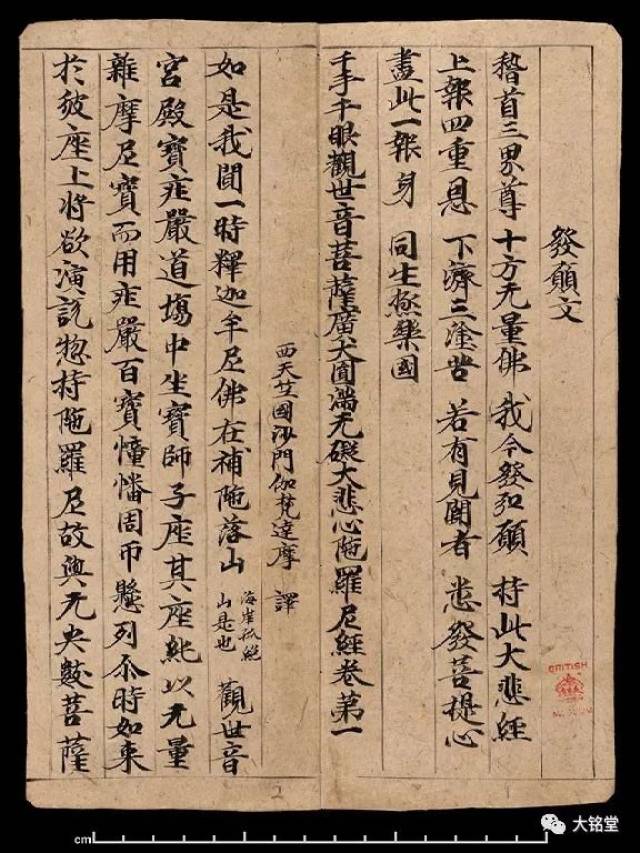 發願文
稽首三界尊 十方无量佛 我今發弘願 持此大悲經
上報四重恩 下濟三塗苦 若有見聞者 悉發菩提心
盡此一報身 同生極樂國
千手千眼觀世音菩薩廣大圓滿无礙大悲心陁羅尼經卷第一
西天竺國沙門伽梵達摩 譯
如是我聞一時釋迦牟尼佛在補陁落山 海岸孤絕山是也 觀世音
宮殿寶莊嚴道塲中坐寶師子座其座純以无量
雜摩尼寶而用莊嚴百寶幢幡周帀懸列尒時如来
於彼座上將欲演說惣持陁羅尼故與无央數菩薩
BRITISH
1
2
cm
大铭堂